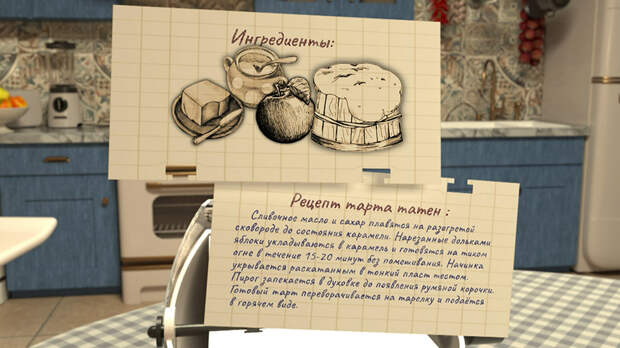 Ингредиенты:
Рецепт тарта татен :
Сливочное масло и сахар плавятся на разогретой
сковороде до состояния карамели. Нарезанные дольками
яблоки укладываются в карамель и готовятся на тихом
огне в течение 15-20 минут без помешивания. Начинка
укрывается раскатанным в тонкий пласт тестом.
Пирог запекается в духовке до появления румяной корочки.
Готовый тарт переворачивается на тарелку и подаётся
в горячем виде.